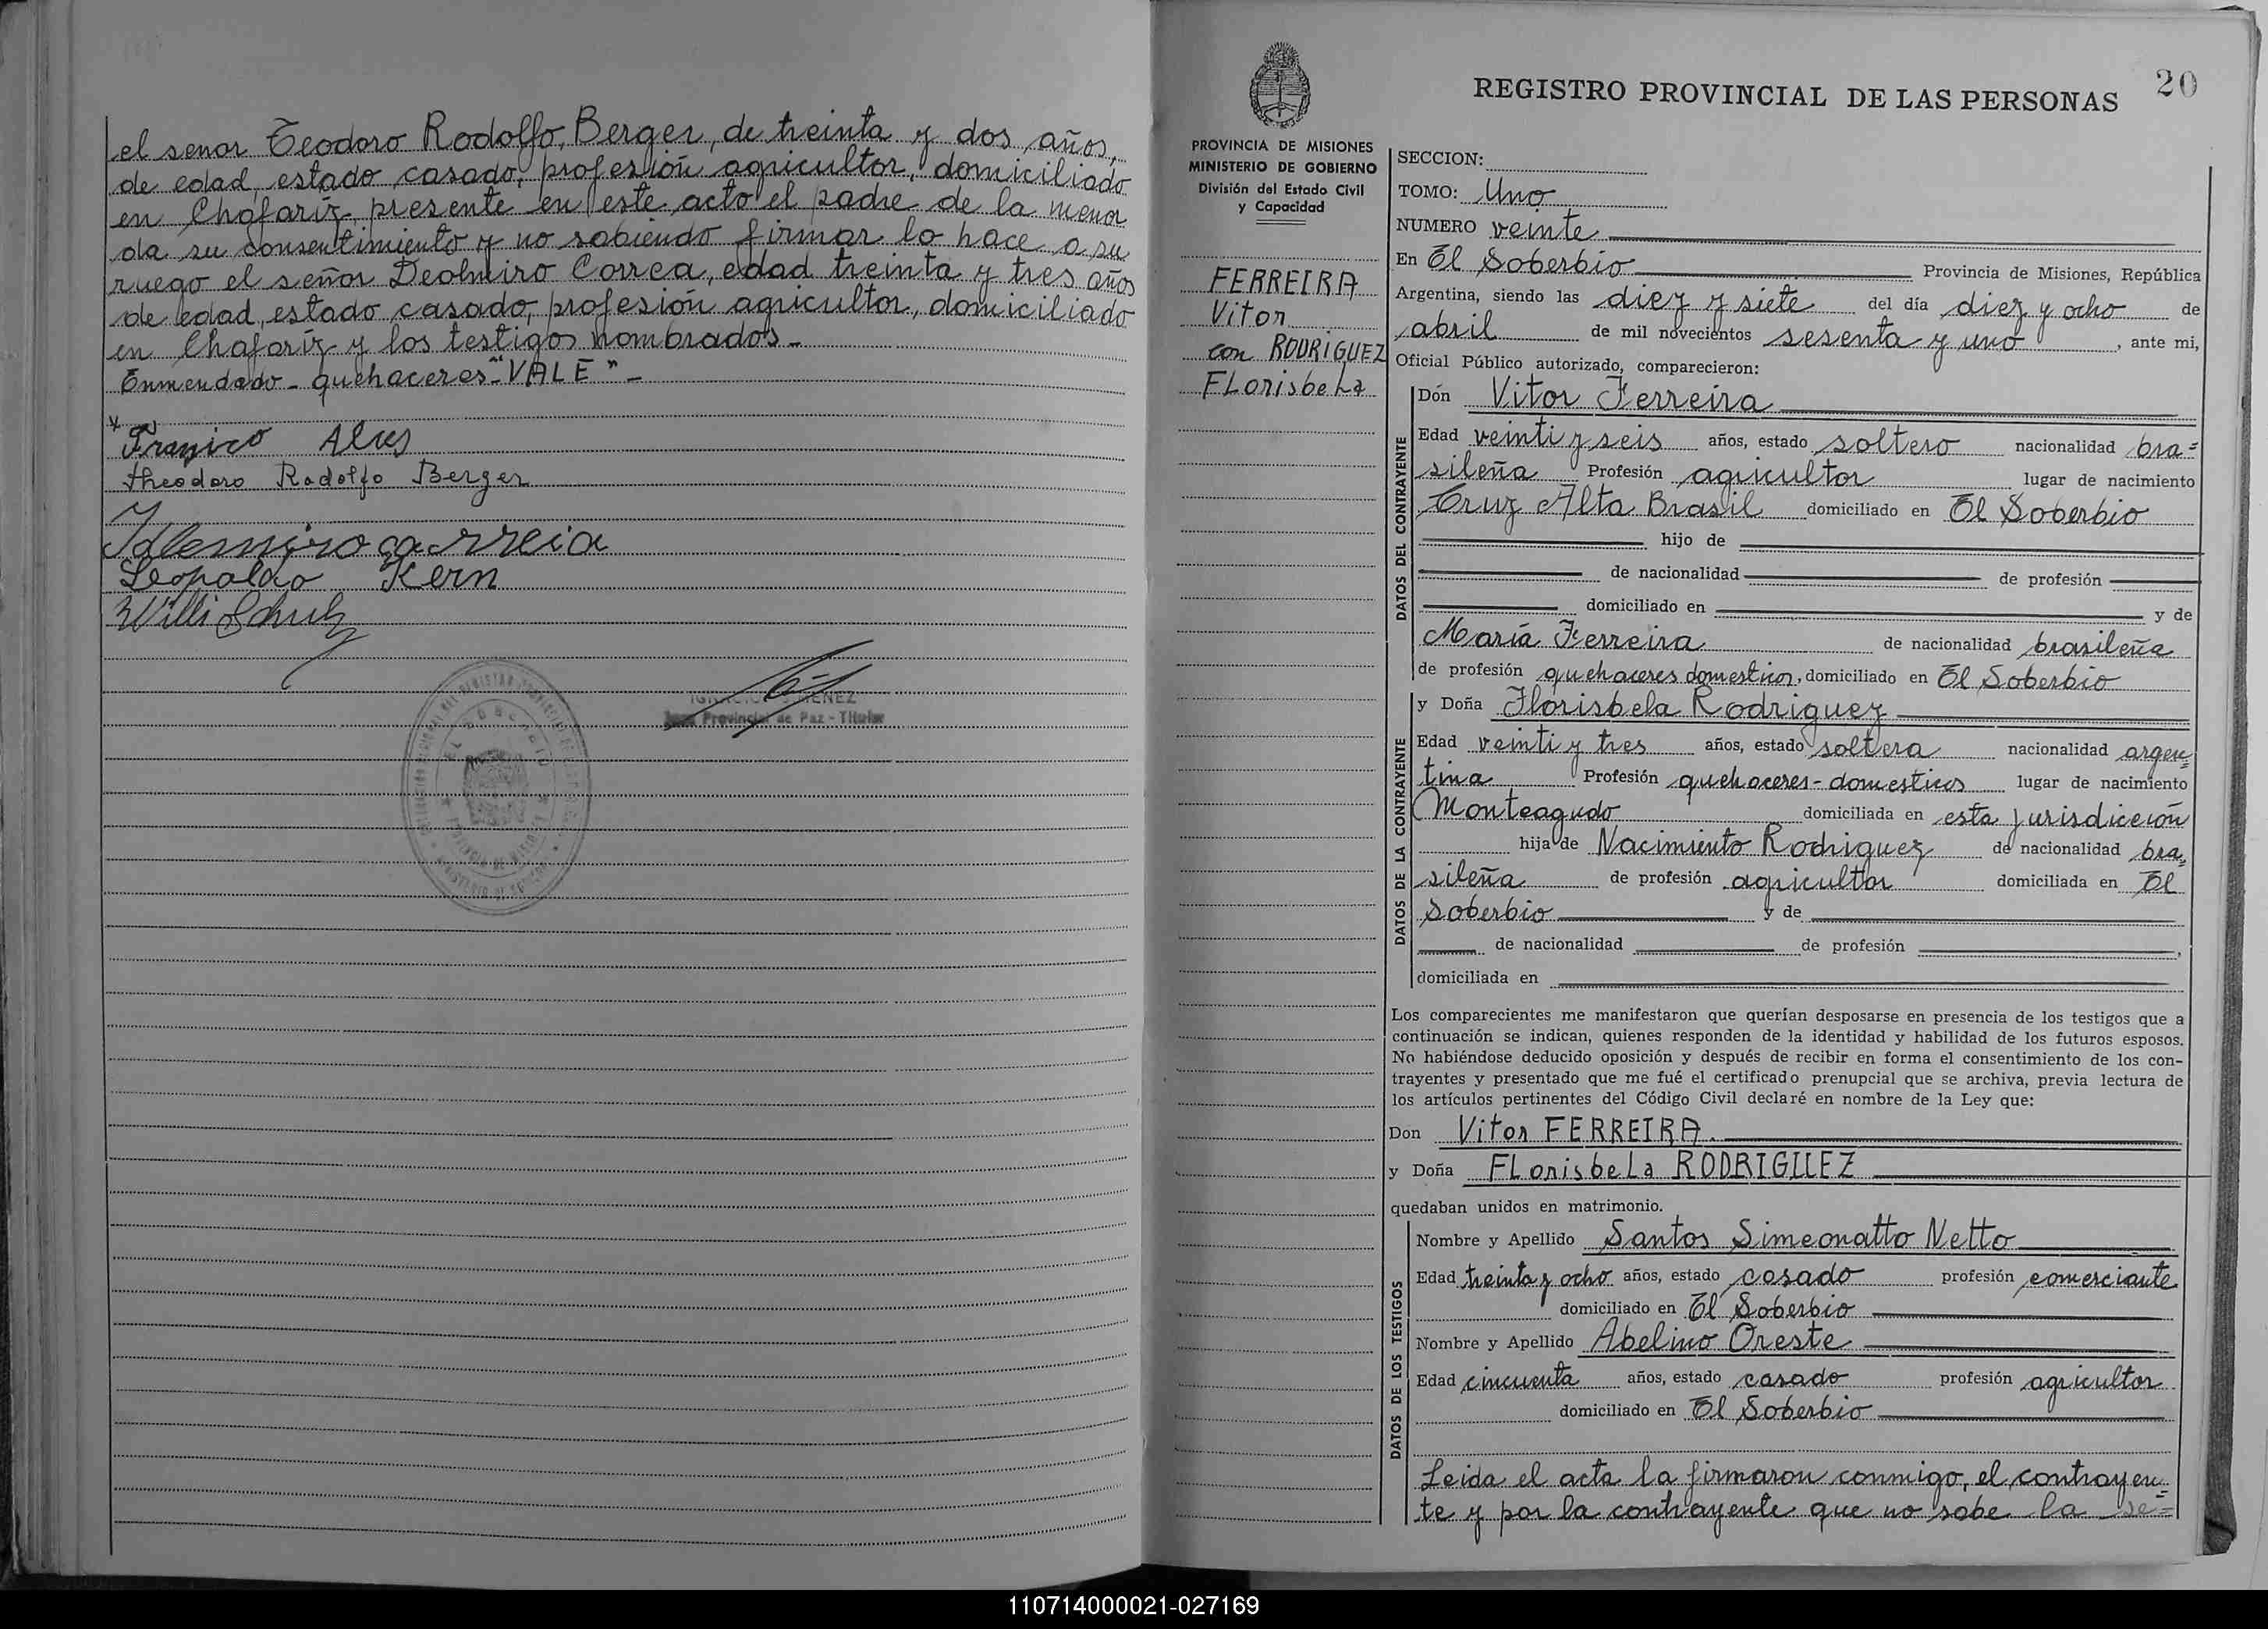 el senor Teodoro Rodolfo, Berger, de treinta y dos años,
de edad, estado casado, profesión agricultor, domiciliado
en Chafariz, presente en este acto el padre de la menor
da su consentimiento y no sabiendo firmar lo hace a su
ruego el señor Deolmiro Correa, edad treinta y tres años
de edad, estado casado, profesión agricultor, domiciliado
en Chafariz y los testigos nombrados.-
Enmendado - quehaceres-"VALE"-
Alves
theodoro Rodolfo Berger
Leopoldo Kern
Willi Schulz
IGNACIO JIMENEZ
Juez Provincial de Paz - Titular
20
REGISTRO PROVINCIAL DE LAS PERSONAS
PROVINCIA DE MISIONES
MINISTERIO DE GOBIERNO
División del Estado Civil
y Capacidad
FERREIRA
Vitor
con RODRIGUEZ
FLorisbeLa
SECCION:
TOMO: Uno
NUMERO veinte
En El Soberbio Provincia de Misiones, República
Argentina, siendo las diez y siete del día diez y ocho de
abril de mil novecientos sesenta y uno, ante mi,
Oficial Público autorizado, comparecieron:
DATOS DEL CONTRAYENTE
Dón Vitor Ferreira
Edad veinti y seis años, estado soltero nacionalidad bra=
sileña Profesión agricultor lugar de nacimiento
Cruz Alta Brasil domiciliado en El Soberbio
hijo de
de nacionalidad de profesión
domiciliado en y de
María Ferreira de nacionalidad brasileña
de profesión quehaceres domesticos, domiciliado en El Soberbio
DATOS DE LA CONTRAYENTE
y Doña Florisbela Rodriguez
Edad veinti y tres años, estado soltera nacionalidad argen=
tina Profesión quehaceres-domesticos lugar de nacimiento
Monteagudo domiciliada en esta jurisdicción
hija de Nacimiento Rodriguez de nacionalidad bra=
sileña de profesión agricultor domiciliada en El
Soberbio y de
de nacionalidad de profesión ,
domiciliada en
Los comparecientes me manifestaron que querían desposarse en presencia de los testigos que a
continuación se indican, quienes responden de la identidad y habilidad de los futuros esposos.
No habiéndose deducido oposición y después de recibir en forma el consentimiento de los con-
trayentes y presentado que me fué el certificado prenupcial que se archiva, previa lectura de
los artículos pertinentes del Código Civil declaré en nombre de la Ley que:
Don Vitor FERREIRA.
y Doña FLorisbeLa RODRIGUEZ
quedaban unidos en matrimonio.
DATOS DE LOS TESTIGOS
Nombre y Apellido Santos Simeonatto Netto
Edad treinta y ocho años, estado casado profesión comerciante
domiciliado en El Soberbio
Nombre y Apellido Abelino Oreste
Edad cincuenta años, estado casado profesión agricultor
domiciliado en El Soberbio
Leida el acta la firmaron conmigo, el contrayen=
te y por la contrayente que no sabe la se=
110714000021-027169